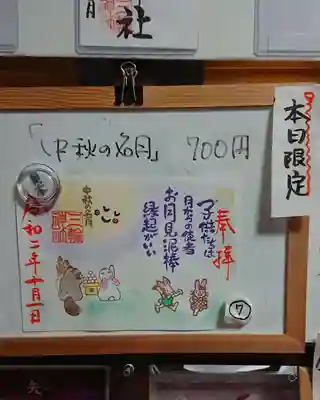 月
社
本日限定
「中秋の名月」 700円
奉拝
子供たちは
月からの使者
お月見泥棒
縁起がいい
中秋の名月
令和二年十月一日
7
矢